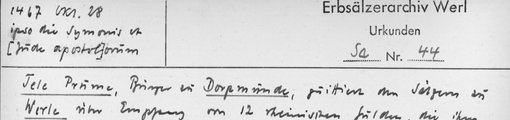 1467 Okt. 28
ipso die Symonis et
[Jude apostol]orum
Erbsälzerarchiv Werl
Urkunden
Sa Nr. 44
Tele Prüme, Bürger zu Dorpmünde, quittiert den Sälzern zu
Werle über Empfang von 12 rheinischen Gulden, die ihm